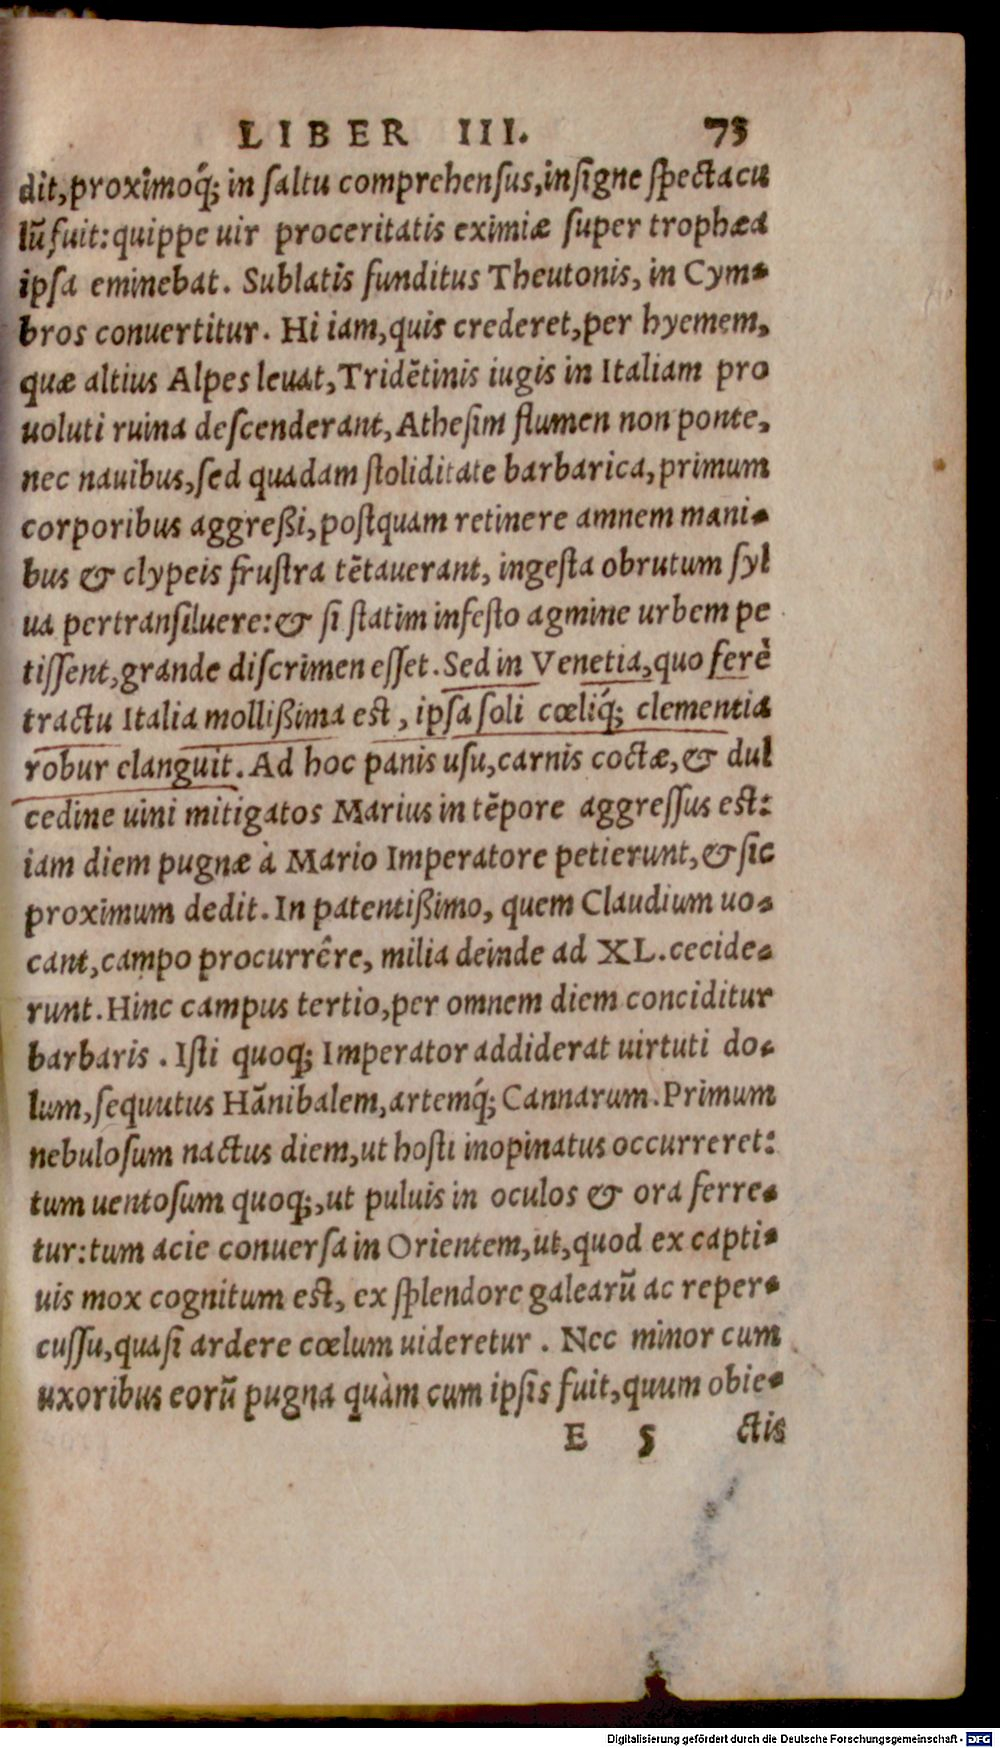 LIBER III. 73
dit,proximoq́; in saltu comprehensus,insigne spectacu
lū fuit:quippe uir proceritatis eximiæ super trophæa
ipsa eminebat. Sublatis funditus Theutonis, in Cym-
bros conuertitur. Hi iam,quis crederet,per hyemem,
quæ altius Alpes leuat,Tridētinis iugis in Italiam pro
uoluti ruina descenderant,Athesim flumen non ponte,
nec nauibus,sed quadam stoliditate barbarica,primum
corporibus aggreßi,postquam retinere amnem mani-
bus & clypeis frustra tētauerant, ingesta obrutum syl
ua pertransiluere:& si statim infesto agmine urbem pe
tissent,grande discrimen esset. Sed in Venetia,quo ferè
tractu Italia mollißima est, ipsa soli cœliq́; clementia
robur elanguit. Ad hoc panis usu,carnis coctæ,& dul
cedine uini mitigatos Marius in tēpore aggressus est:
iam diem pugnæ à Mario Imperatore petierunt,& sic
proximum dedit. In patentißimo, quem Claudium uo-
cant,campo procurrêre, milia deinde ad XL. cecide-
runt. Hinc campus tertio,per omnem diem conciditur
barbaris . Isti quoq; Imperator addiderat uirtuti do-
lum,sequutus Hānibalem,artemq́; Cannarum. Primum
nebulosum nactus diem,ut hosti inopinatus occurreret:
tum uentosum quoq;,ut puluis in oculos & ora ferre-
tur:tum acie conuersa in Orientem,ut,quod ex capti-
uis mox cognitum est, ex splendore galearū ac reper-
cussu,quasi ardere cœlum uideretur . Nec minor cum
uxoribus eorū pugna quàm cum ipsis fuit,quum obie-
E 5 ctis
Digitalisierung gefördert durch die Deutsche Forschungsgemeinschaft - DFG